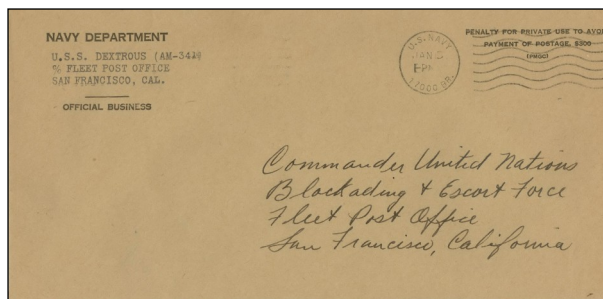 NAVY DEPARTMENT
U.S.S. DEXTROUS (AM-341)
% FLEET POST OFFICE
SAN FRANCISCO, CAL.
OFFICIAL BUSINESS
U.S. NAVY
JAN
17000 BR.
PENALTY FOR PRIVATE USE TO AVOID
PAYMENT OF POSTAGE, $300
(PMGC)
Commander United Nations
Blockading & Escort Force
Fleet Post Office
San Francisco, California